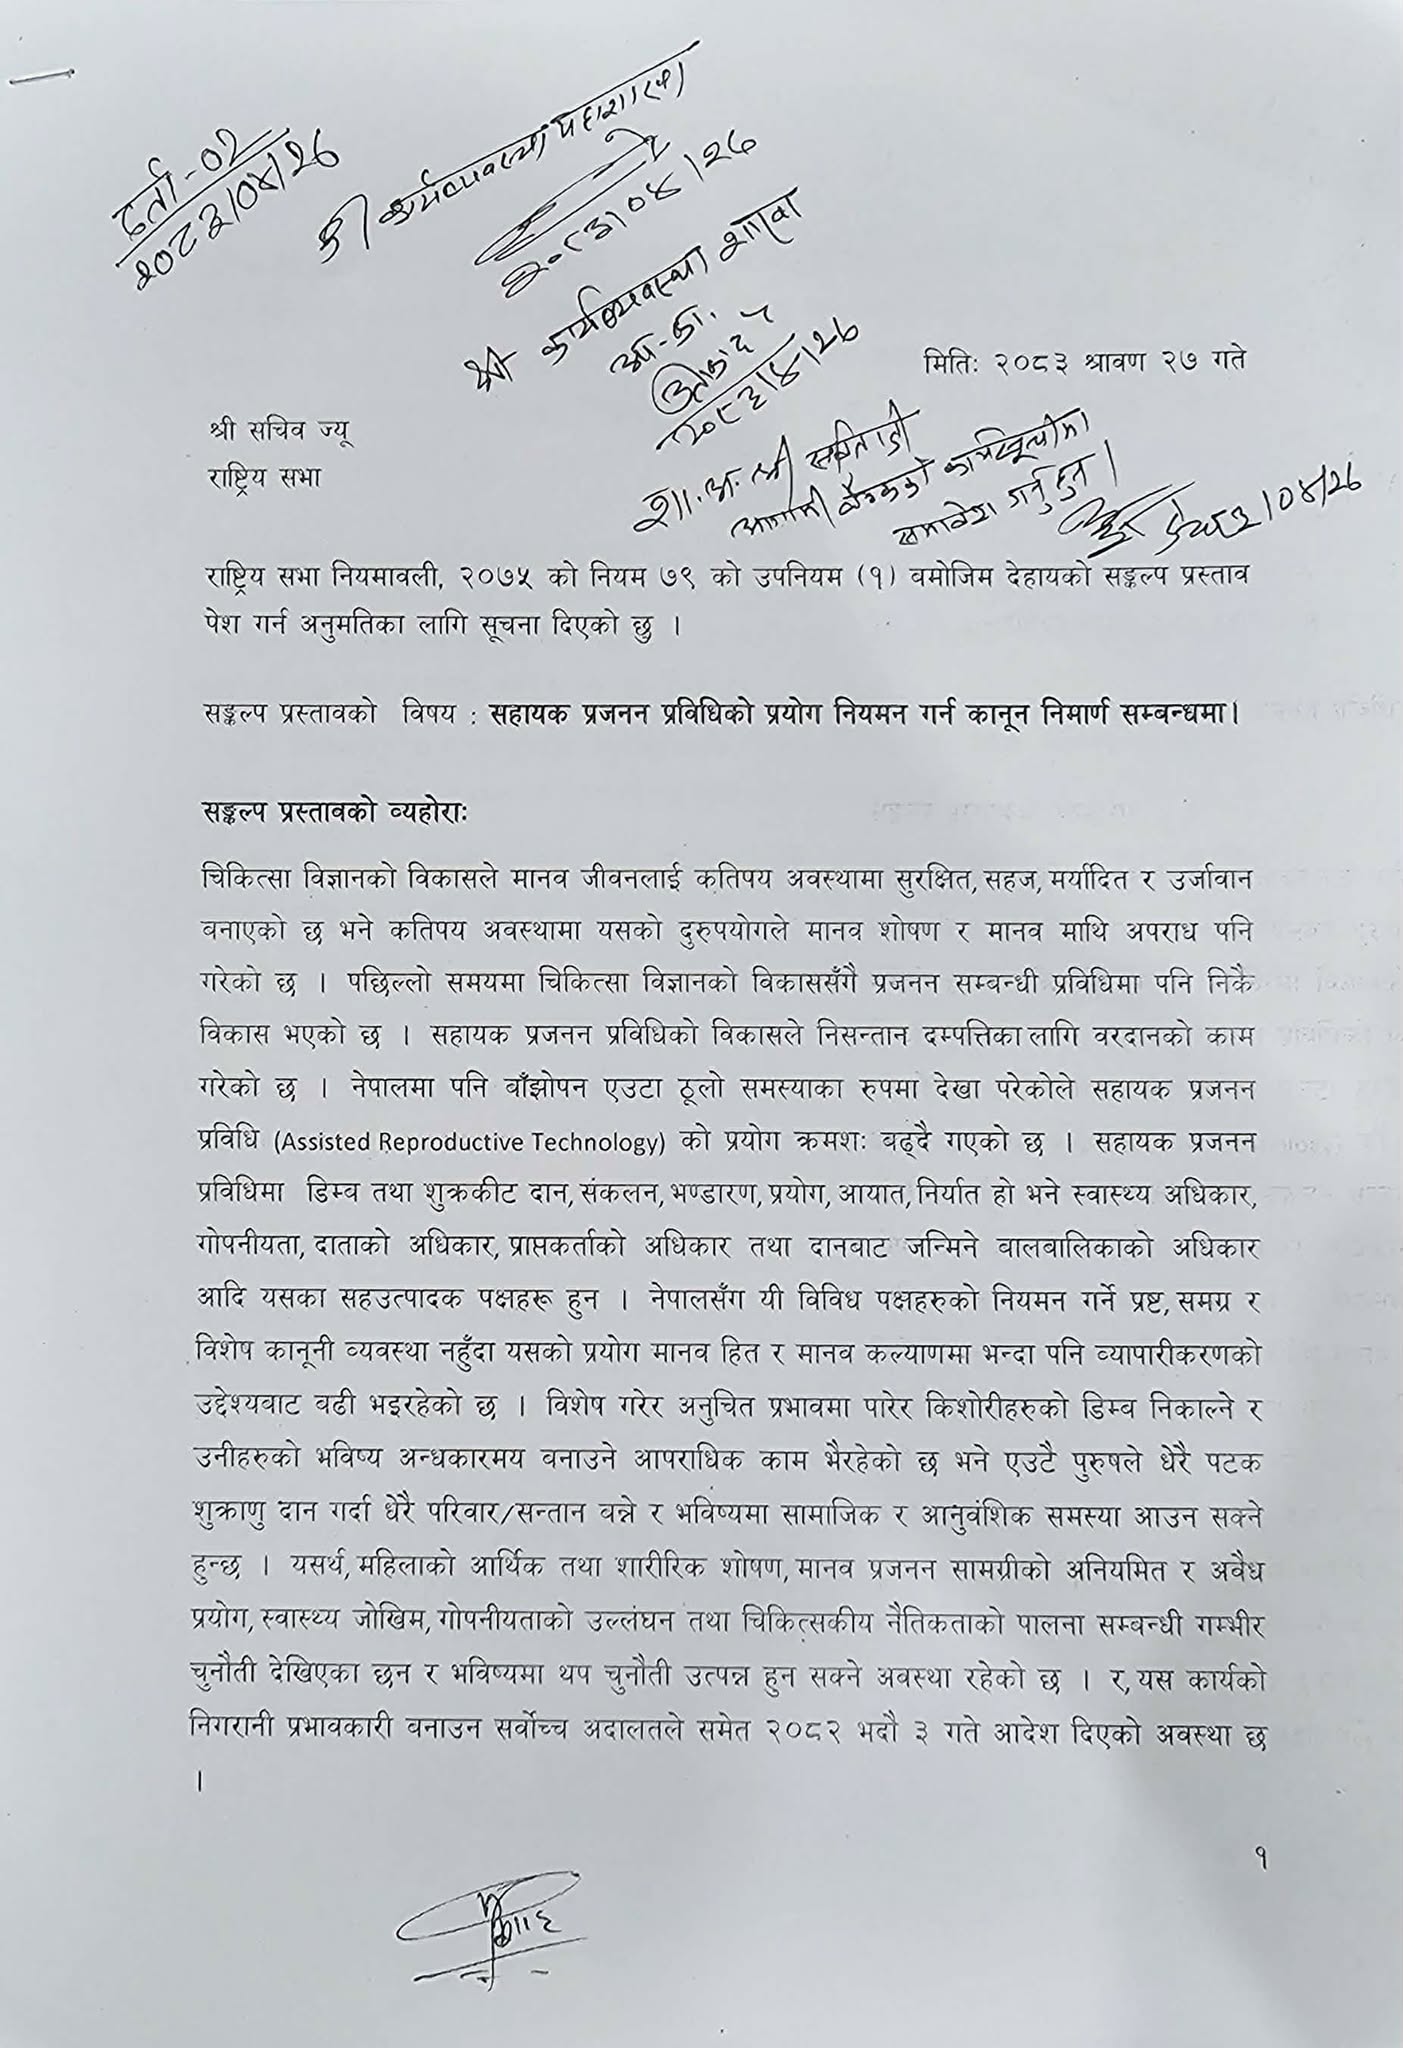 दर्ता-०२
२०८३/०४/२७
श्री कार्यव्यवस्था महाशाखा
२०८३/०४/२७
श्री कार्यव्यवस्था शाखा
२०८३/४/२७
मितिः २०८३ श्रावण २७ गते
श्री सचिव ज्यू
राष्ट्रिय सभा
शा.अ. श्री
आगामी बैठकको कार्यसूचीमा
समावेश गर्नुहुन।
२०८३/०४/२७
राष्ट्रिय सभा नियमावली, २०७५ को नियम ७९ को उपनियम (१) बमोजिम देहायको सङ्कल्प प्रस्ताव
पेश गर्न अनुमतिका लागि सूचना दिएको छु ।
सङ्कल्प प्रस्तावको विषय : सहायक प्रजनन प्रविधिको प्रयोग नियमन गर्न कानून निमार्ण सम्बन्धमा।
सङ्कल्प प्रस्तावको व्यहोराः
चिकित्सा विज्ञानको विकासले मानव जीवनलाई कतिपय अवस्थामा सुरक्षित, सहज, मर्यादित र उर्जावान
बनाएको छ भने कतिपय अवस्थामा यसको दुरुपयोगले मानव शोषण र मानव माथि अपराध पनि
गरेको छ । पछिल्लो समयमा चिकित्सा विज्ञानको विकाससँगै प्रजनन सम्बन्धी प्रविधिमा पनि निकै
विकास भएको छ । सहायक प्रजनन प्रविधिको विकासले निसन्तान दम्पत्तिका लागि वरदानको काम
गरेको छ । नेपालमा पनि बाँझोपन एउटा ठूलो समस्याका रुपमा देखा परेकोले सहायक प्रजनन
प्रविधि (Assisted Reproductive Technology) को प्रयोग क्रमशः बढ्दै गएको छ । सहायक प्रजनन
प्रविधिमा डिम्ब तथा शुक्रकीट दान, संकलन, भण्डारण, प्रयोग, आयात, निर्यात हो भने स्वास्थ्य अधिकार,
गोपनीयता, दाताको अधिकार, प्राप्तकर्ताको अधिकार तथा दानबाट जन्मिने बालबालिकाको अधिकार
आदि यसका सहउत्पादक पक्षहरू हुन । नेपालसँग यी विविध पक्षहरुको नियमन गर्ने प्रष्ट, समग्र र
विशेष कानूनी व्यवस्था नहुँदा यसको प्रयोग मानव हित र मानव कल्याणमा भन्दा पनि व्यापारीकरणको
उद्देश्यबाट बढी भइरहेको छ । विशेष गरेर अनुचित प्रभावमा पारेर किशोरीहरुको डिम्ब निकाल्ने र
उनीहरुको भविष्य अन्धकारमय बनाउने आपराधिक काम भैरहेको छ भने एउटै पुरुषले धेरै पटक
शुक्राणु दान गर्दा धेरै परिवार/सन्तान बन्ने र भविष्यमा सामाजिक र आनुवंशिक समस्या आउन सक्ने
हुन्छ । यसर्थ, महिलाको आर्थिक तथा शारीरिक शोषण, मानव प्रजनन सामग्रीको अनियमित र अवैध
प्रयोग, स्वास्थ्य जोखिम, गोपनीयताको उल्लंघन तथा चिकित्सकीय नैतिकताको पालना सम्बन्धी गम्भीर
चुनौती देखिएका छन र भविष्यमा थप चुनौती उत्पन्न हुन सक्ने अवस्था रहेको छ । र, यस कार्यको
निगरानी प्रभावकारी बनाउन सर्वोच्च अदालतले समेत २०८२ भदौ ३ गते आदेश दिएको अवस्था छ
।
१